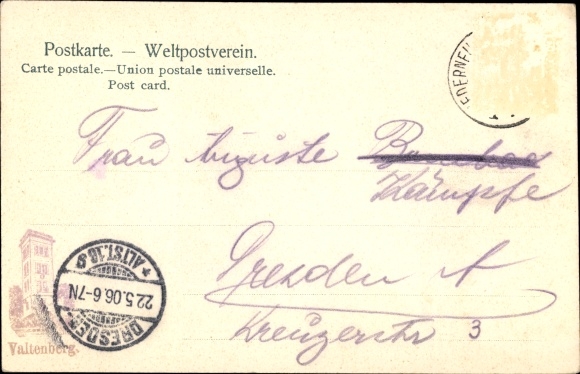 Postkarte. — Weltpostverein.
Carte postale.—Union postale universelle.
Post card.
EDERNEU
Frau Auguste
Kämpfe
Dresden A
Kreuzerstr 3
DRESDEN
* ALTST. 16. g *
22.5.06.6-7N
Valtenberg.